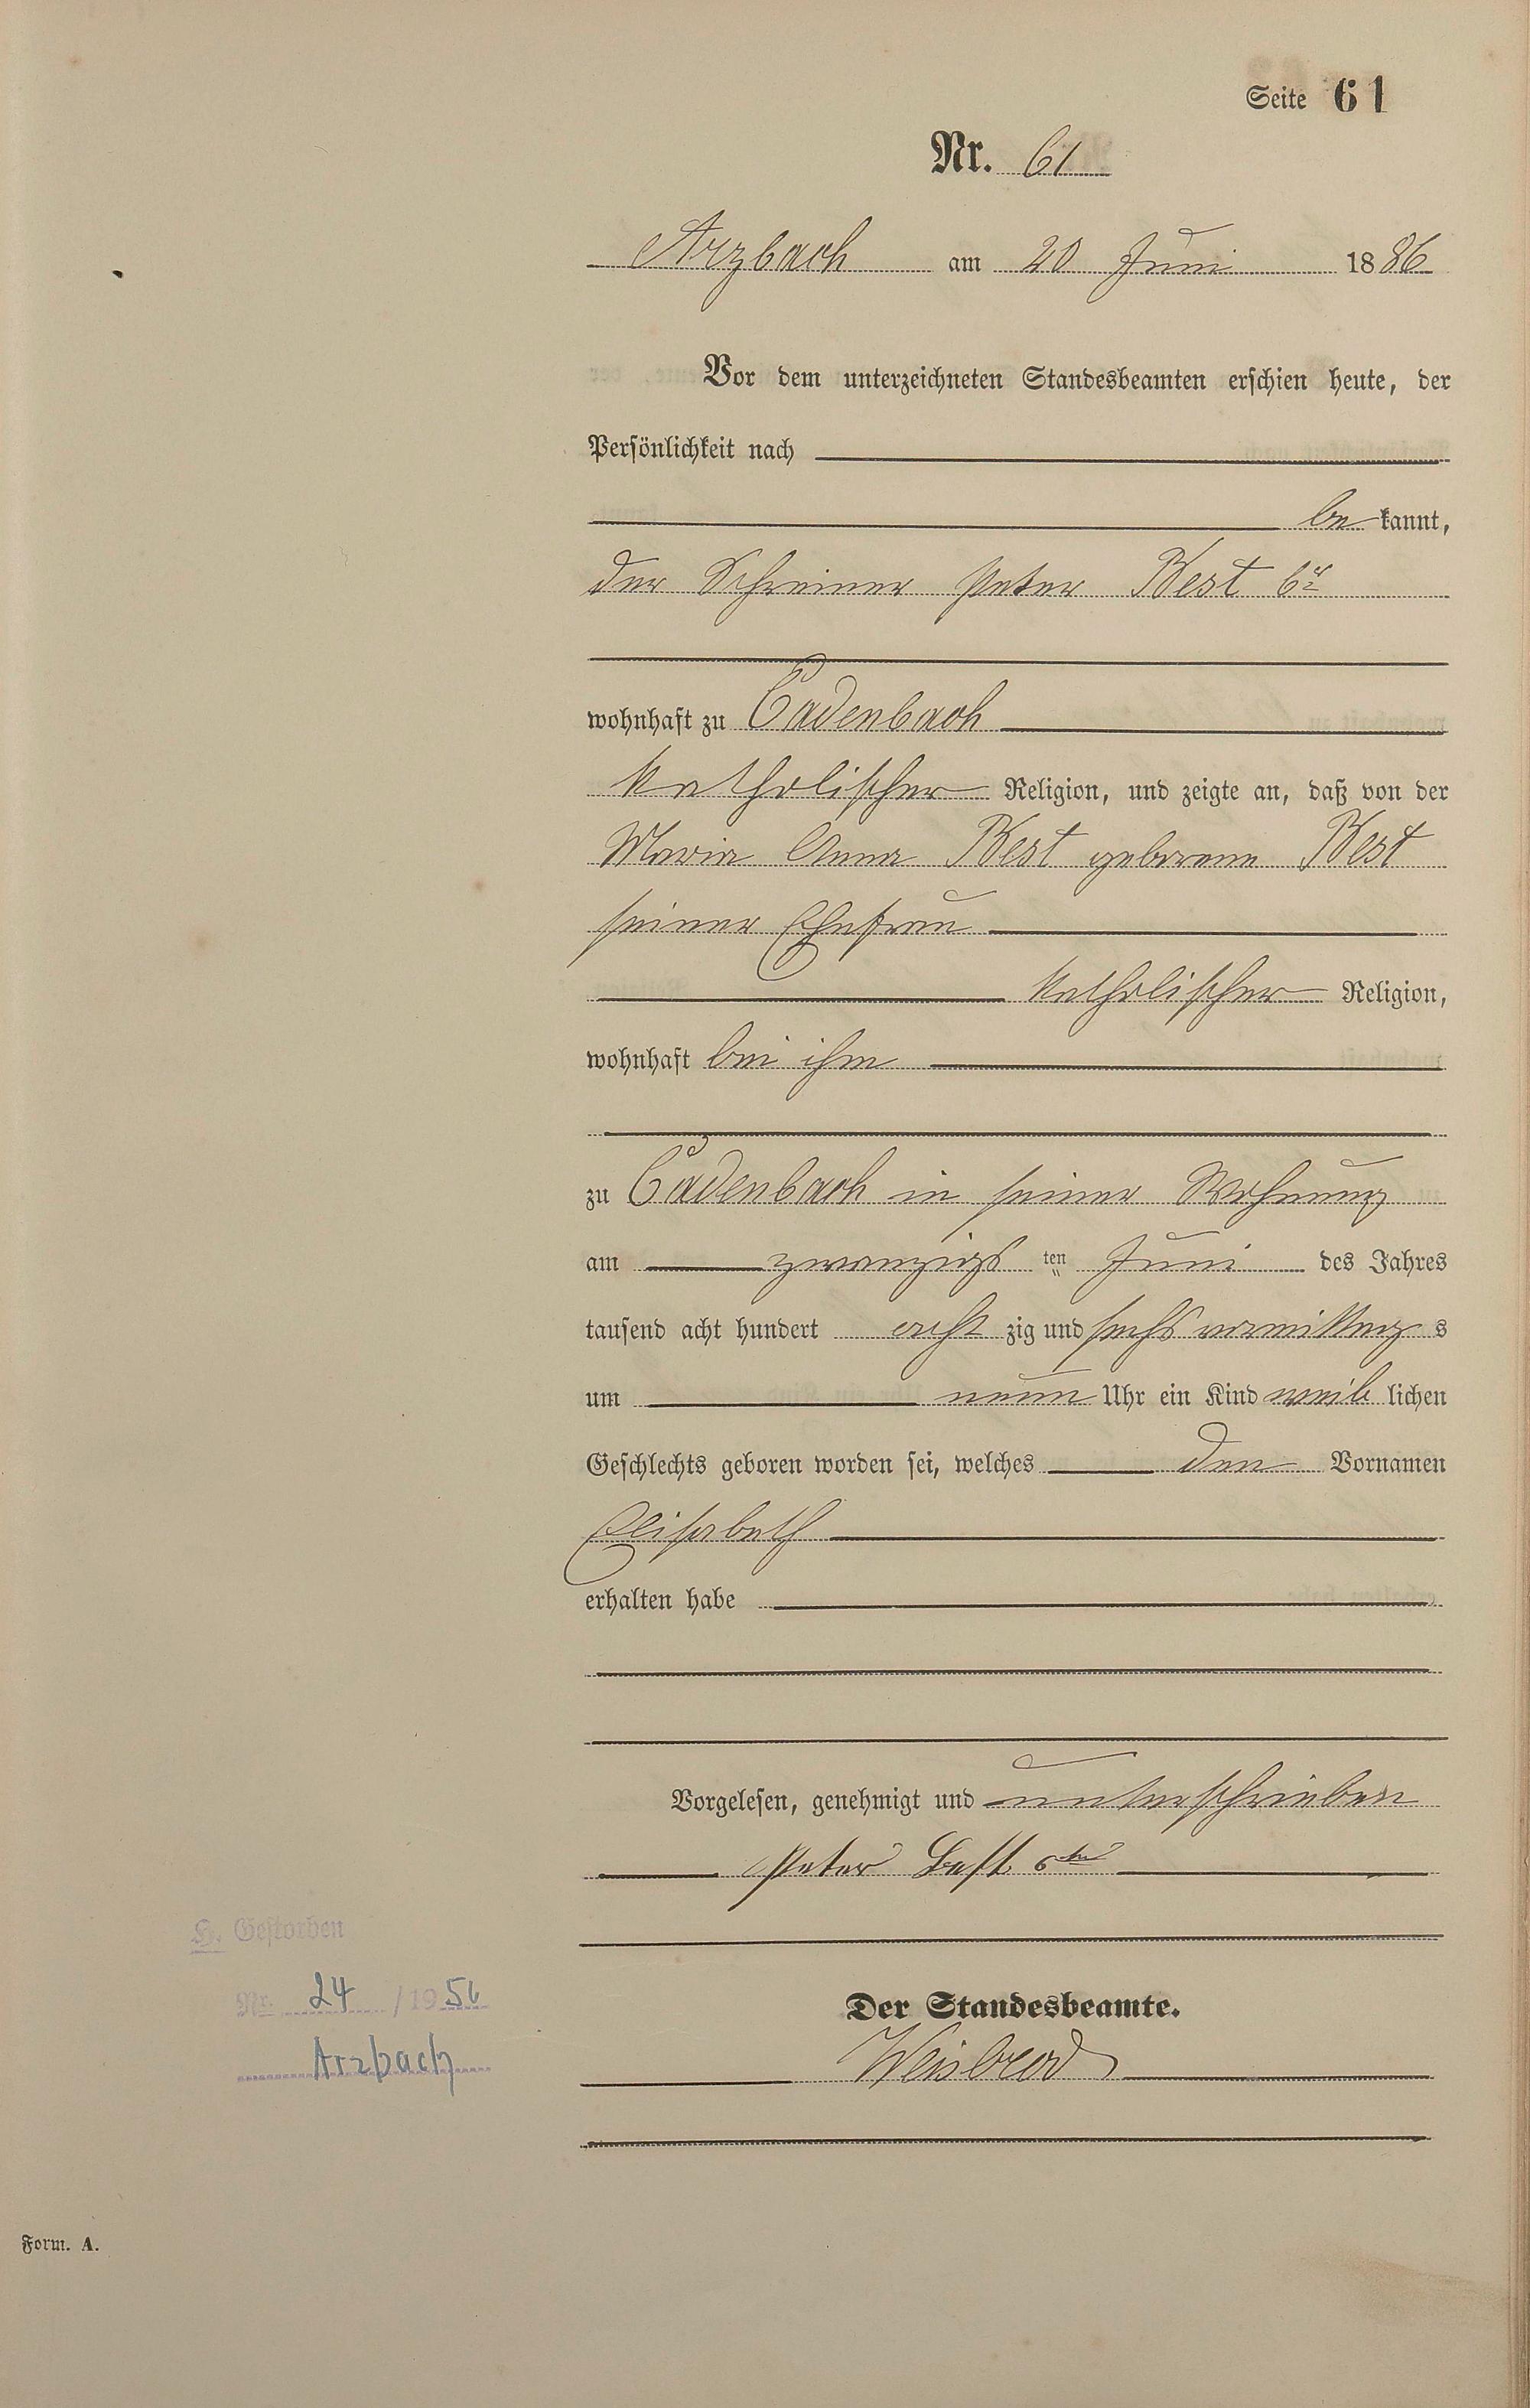 Seite 61
Nr. 61
Arzbach am 20 Juni 1886
Vor dem unterzeichneten Standesbeamten erschien heute, der
Persönlichkeit nach
be kannt,
der Schreiner Peter Best 6r
wohnhaft zu Cadenbach
katholischer Religion, und zeigte an, daß von der
Maria Anna Best geborene Best
seiner Ehefrau
katholischer Religion,
wohnhaft bei ihm
zu Cadenbach in seiner Wohnung
am zwanzigs ten Juni des Jahres
tausend acht hundert acht zig und sechs vormittag s
um neun Uhr ein Kind weib lichen
Geschlechts geboren worden sei, welches den Vornamen
Elisabeth
erhalten habe
Vorgelesen, genehmigt und unterschrieben
Peter Best 6te
H. Gestorben
Nr. 24 /1956
Arzbach
Der Standesbeamte.
Weisbrod
Form. A.